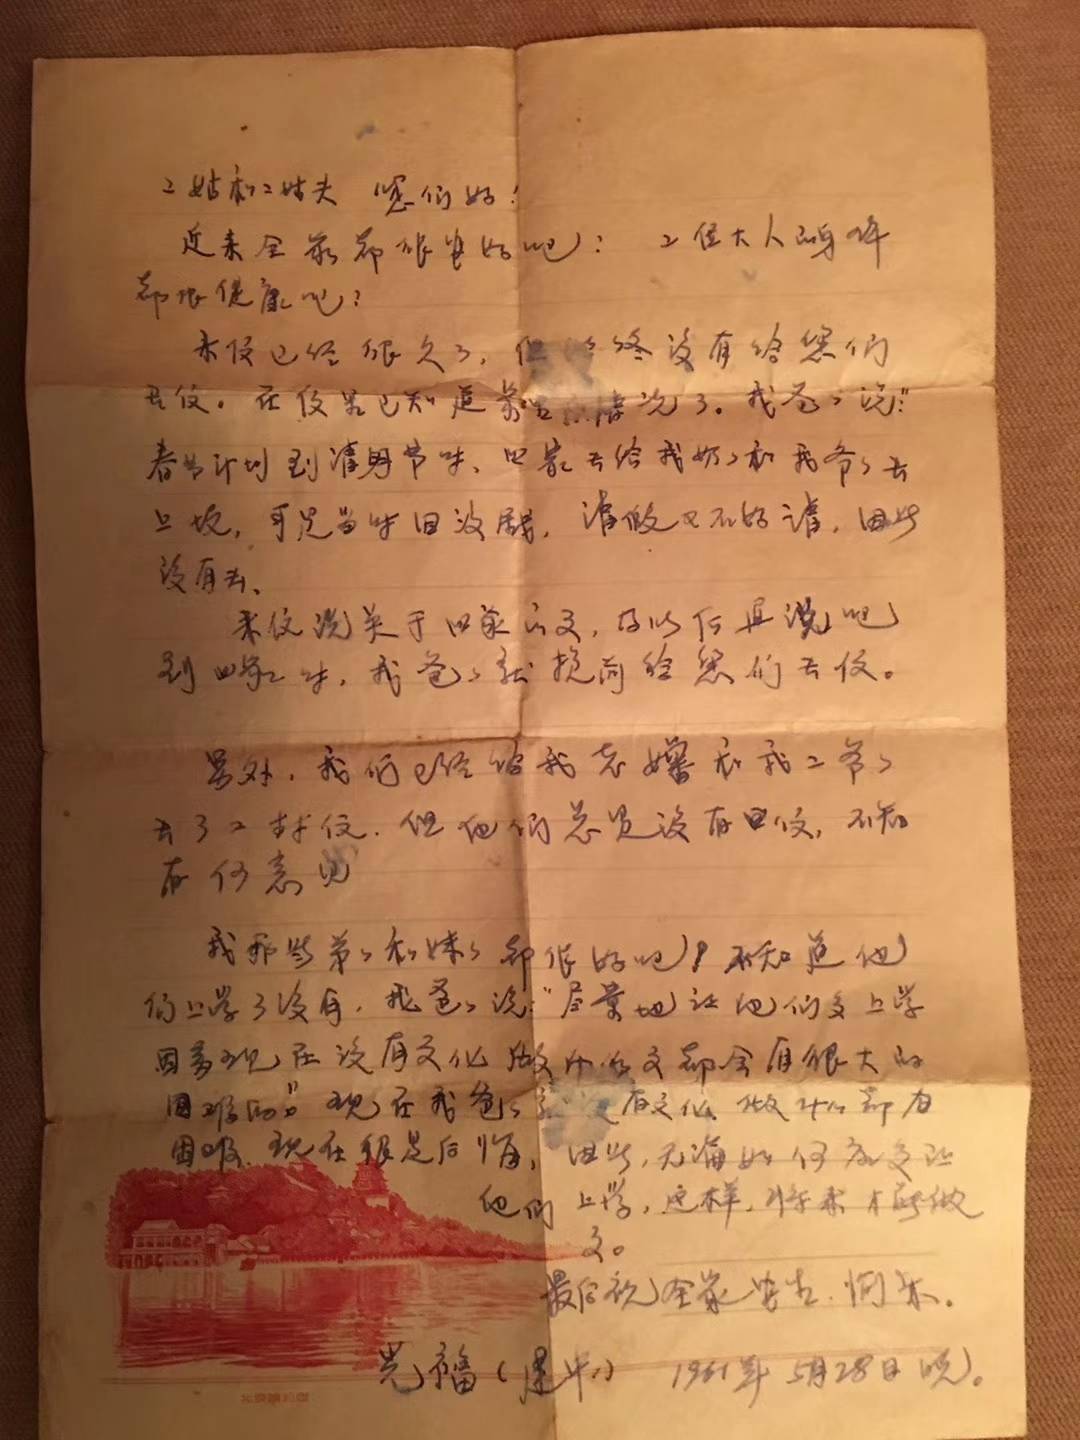 二姑和二姑夫 您们好！
近来全家都很安好吧？ 二位大人的身体
都很健康吧？
来信已经很久了，但 终没有给您们
去信。在信里已知道家 情况了。我爸爸说："
春节计划到清明节时、回家去给我奶奶和我爷爷去
上坟，可是当时因没 ，请假又不好请，因此
没有去、
来信说关于回家的文，等以后再说吧
到 时，我爸爸就提前给您们去信。
另外，我们已经给我老婶和我二爷爷
去了二封信．但他们总是没有回信，不知
有何意见
我那些弟弟和妹妹都很好吧！不知道他
们上学了没有，我爸爸说："尽量地让他们多上学
因为现在没有文化做什么文都会有很大的
困难的"现在我爸爸 没有文化、做什么都有
困难、现在很是后悔，因此，无论如何应该让
他们上学，这样，将来才能做
文。
最后祝全家安吉．愉乐。
光福（建华） 1961年5月28日晚。